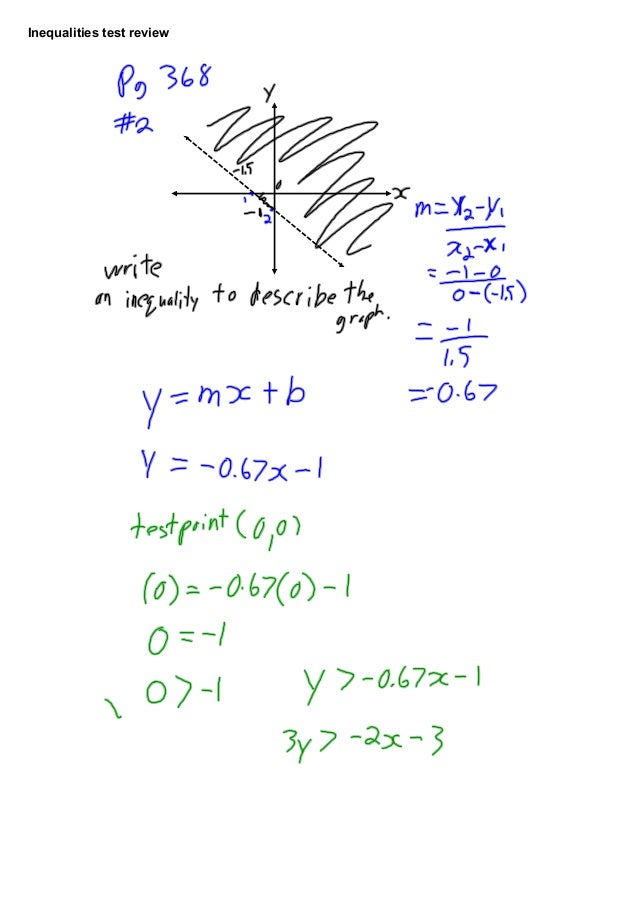 Inequalities test review
Pg 368
#2
y
-1.5
x
-1
write
an inequality to describe the
graph.
m=y₂-y₁
x₂-x₁
= -1-0
0-(-1.5)
= -1
1.5
=-0.67
y = mx + b
y = -0.67x-1
testpoint (0,0)
(0) = -0.67(0) - 1
0 = -1
0 > -1
y > -0.67x - 1
3y > -2x - 3